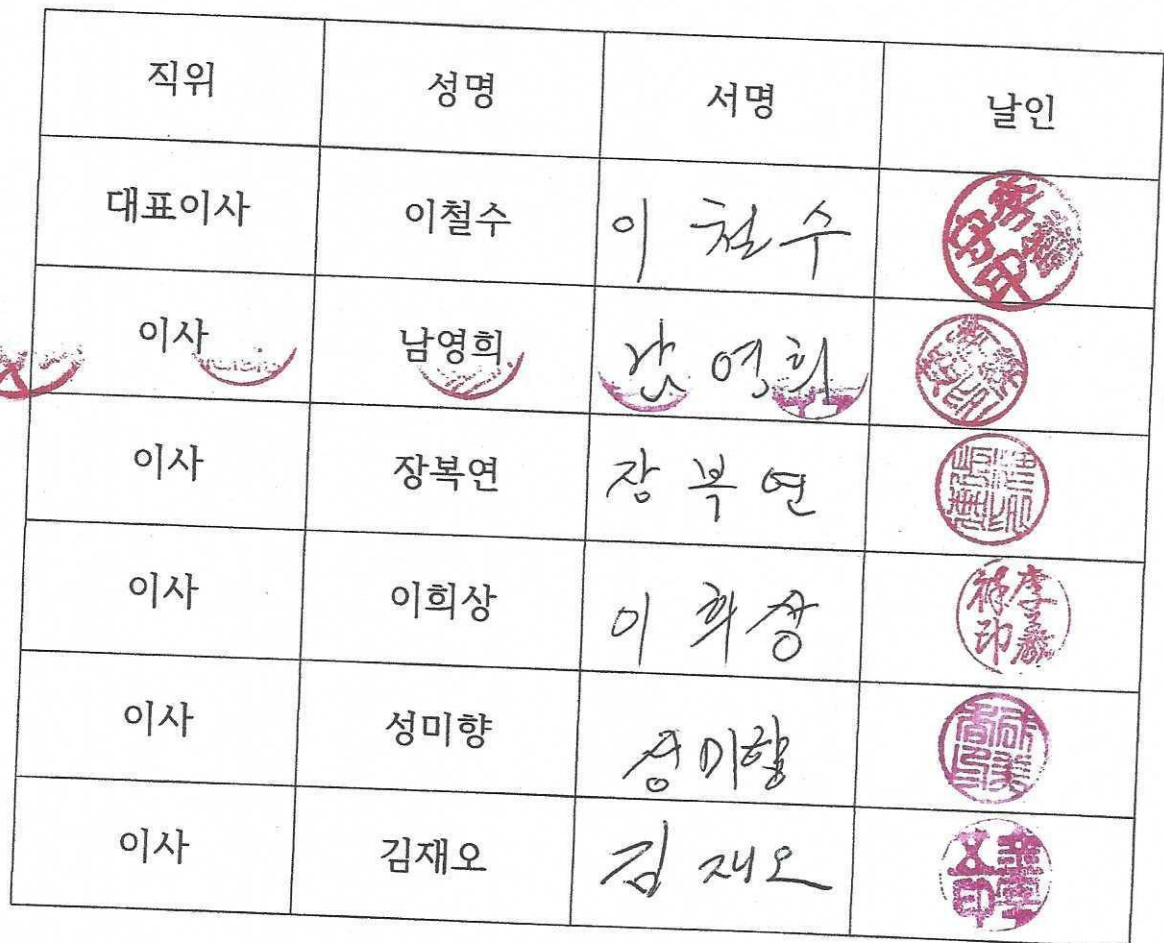 직위 성명 서명 날인
대표이사 이철수 이 철 수
이사 남영희 남 영희
이사 장복연 장 복 연
이사 이희상 이 희 상 李 祥印
이사 성미향 성미향
이사 김재오 김 재오